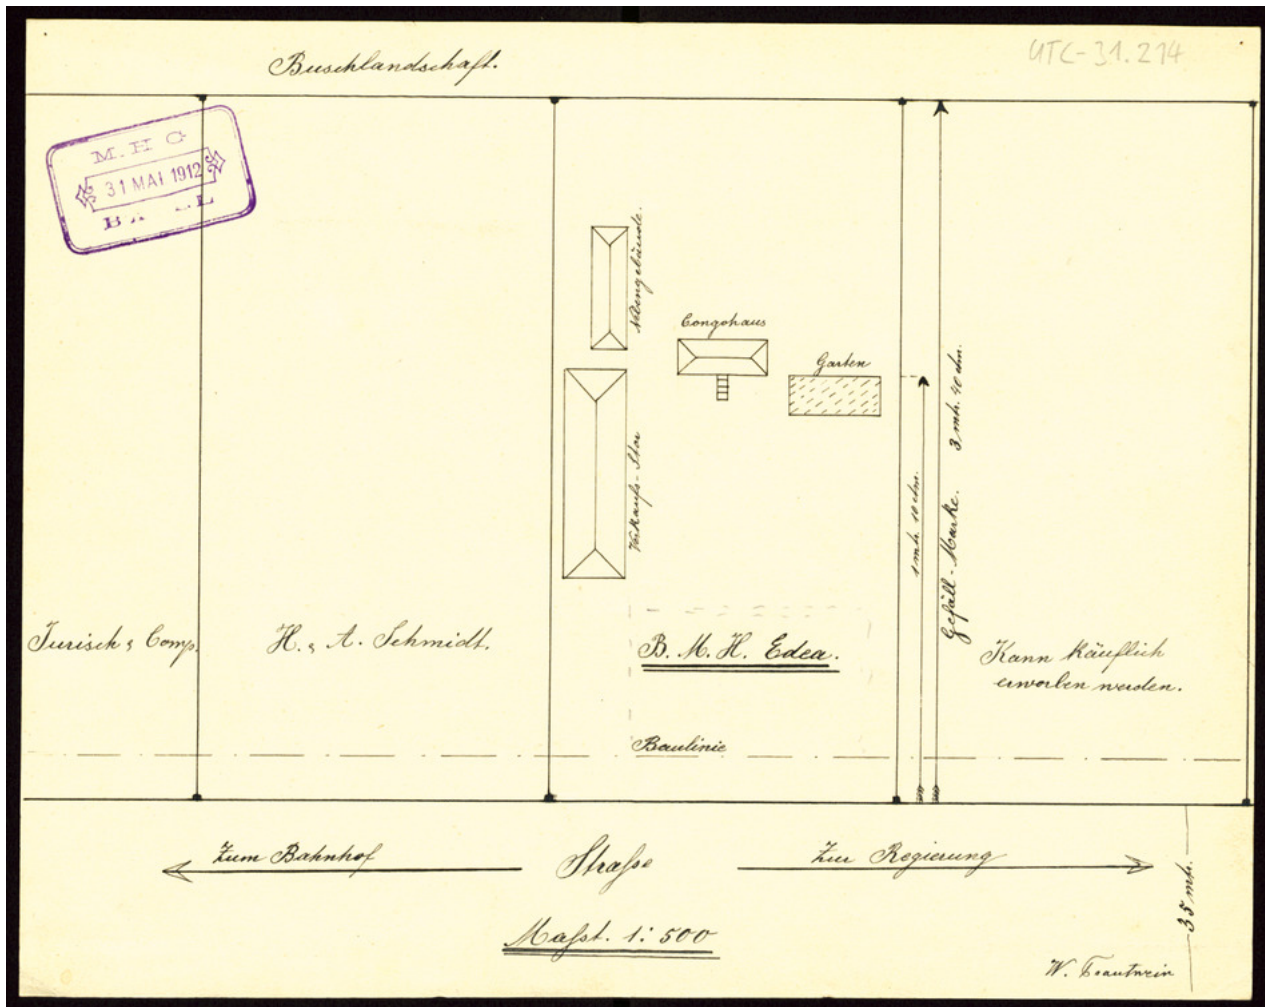 Buschlandschaft.
UTC-31.214
M. H G
31 MAI 1912
Nebengebäude.
Congohaus
Garten
Verkaufs-Stor
3 mtr. 40 ctm.
Gefäll-Marke.
1 mtr. 10 ctm.
Jurisch & Comp.
H. & A. Schmidt.
B. M. H. Edea.
Kann käuflich
erworben werden.
Baulinie
Zum Bahnhof
Straße
Zur Regierung
35 mtr.
Maßst. 1:500
W. Trautwein